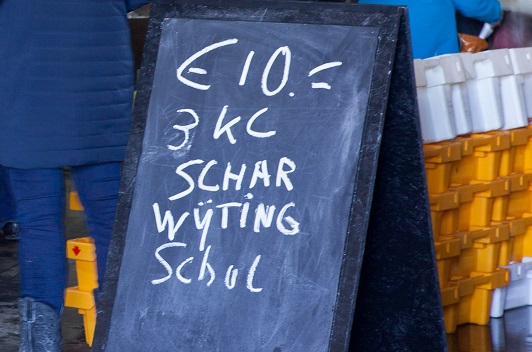 € 10.=
3 KC
SCHAR
WŸTING
Schol